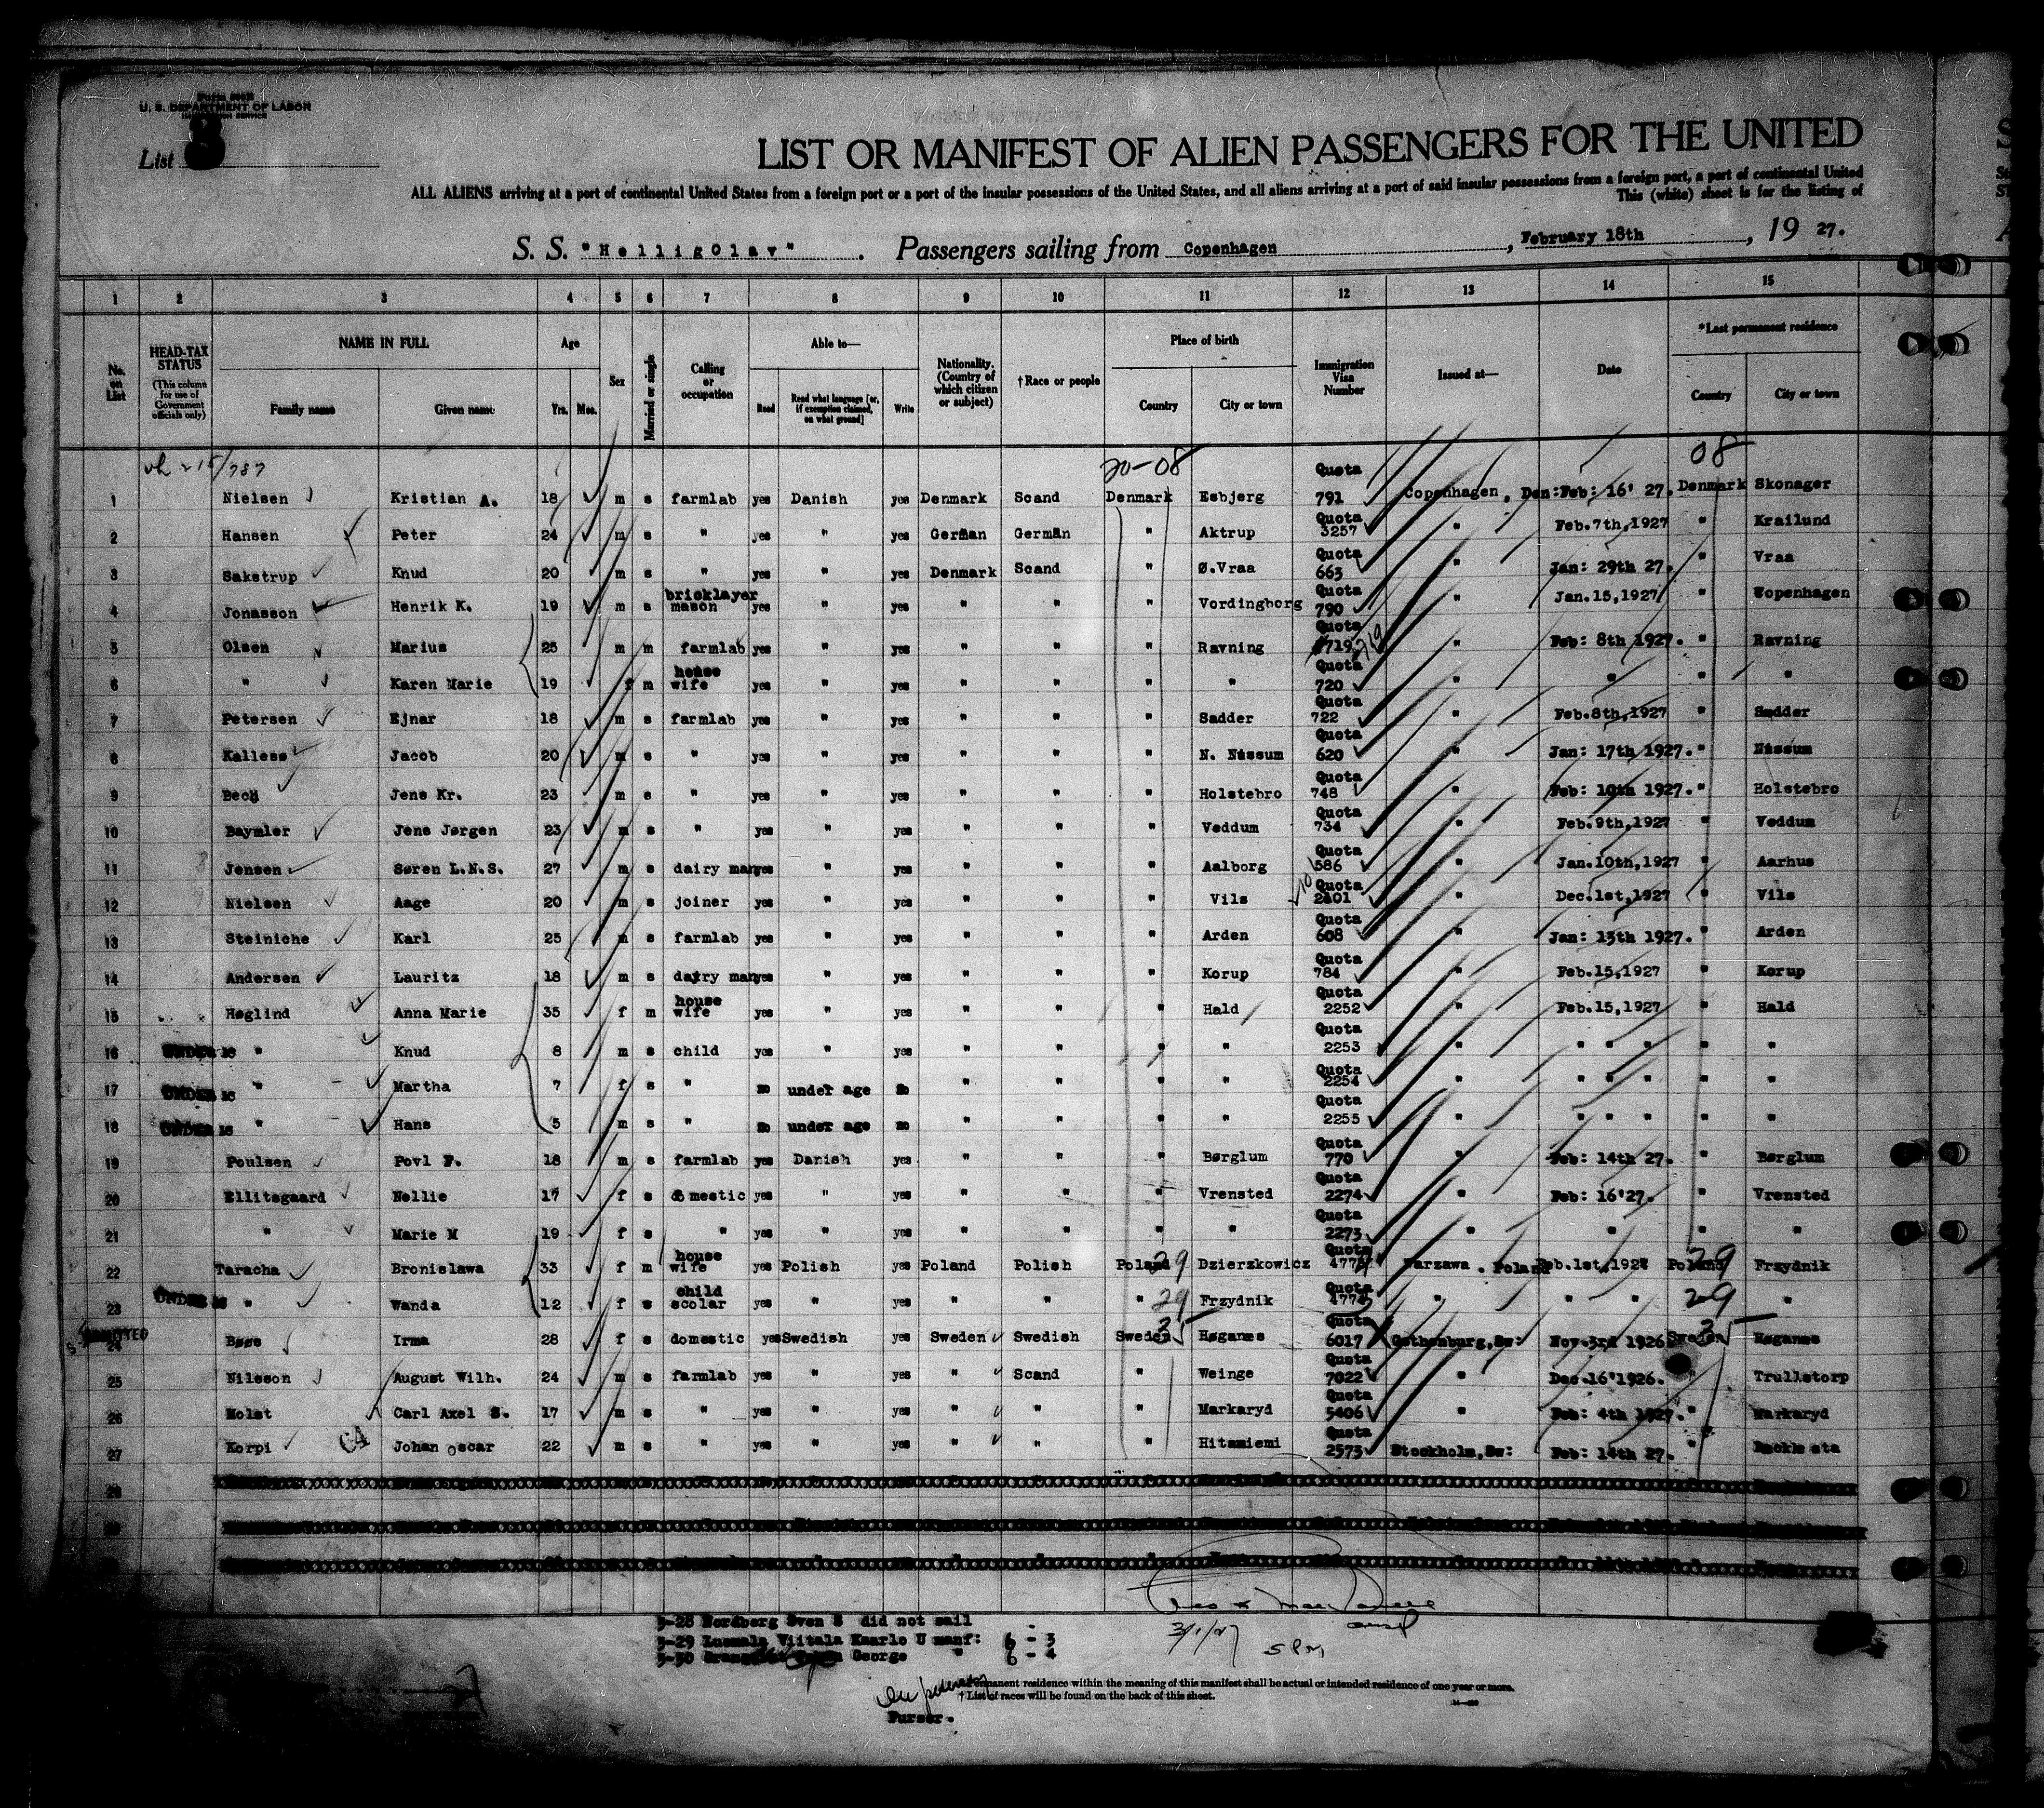 U. S. DEPARTMENT OF LABOR
List 3
LIST OR MANIFEST OF ALIEN PASSENGERS FOR THE UNITED
ALL ALIENS arriving at a port of continental United States from a foreign port or a port of the insular possessions of the United States, and all aliens arriving at a port of said insular possessions from a foreign port, a port of continental United
This (white) sheet is for the listing of
S. S. "HelligOlav". Passengers sailing from Copenhagen, February 18th, 1927.
1 2 3 4 5 6 7 8 9 10 11 12 13 14 15
No. on List HEAD-TAX STATUS (This column for use of Government officials only) NAME IN FULL Family name Given name Age Yrs. Mos. Sex Married or single Calling or occupation Able to— Read Read what language [or, if exemption claimed, on what ground] Write Nationality. (Country of which citizen or subject) †Race or people Place of birth Country City or town Immigration Visa Number Issued at— Date *Last permanent residence Country City or town
20-08 08
1 Nielsen Kristian A. 18 m s farmlab yes Danish yes Denmark Scand Denmark Esbjerg Quota 791 Copenhagen, Den: Feb: 16' 27. Denmark Skonager
2 Hansen Peter 24 m s " yes " yes German German " Aktrup Quota 3257 " Feb.7th,1927 " Krailund
3 Sakstrup Knud 20 m s " yes " yes Denmark Scand " Ø.Vraa Quota 663 " Jan: 29th 27. " Vraa
4 Jonasson Henrik K. 19 m s bricklayer mason yes " yes " " " Vordingborg Quota 790 " Jan.15,1927 " Copenhagen
5 Olsen Marius 25 m m farmlab yes " yes " " " Ravning Quota 719 " Feb: 8th 1927. " Ravning
6 " Karen Marie 19 f m house wife yes " yes " " " " Quota 720 " " " "
7 Petersen Ejnar 18 m s farmlab yes " yes " " " Sadder Quota 722 " Feb.8th,1927 " Sadder
8 Kallesø Jacob 20 m s " yes " yes " " " N. Nissum Quota 620 " Jan: 17th 1927. " Nissum
9 Bech Jens Kr. 23 m s " yes " yes " " " Holstebro Quota 748 " Feb: 10th 1927. " Holstebro
10 Baymler Jens Jørgen 23 m s " yes " yes " " " Veddum Quota 734 " Feb.9th,1927 " Veddum
11 Jensen Søren L.N.S. 27 m s dairy man yes " yes " " " Aalborg Quota 586 " Jan.10th,1927 " Aarhus
12 Nielsen Aage 20 m s joiner yes " yes " " " Vils Quota " Dec.1st,1927 " Vils
13 Steiniche Karl 25 m s farmlab yes " yes " " " Arden Quota 608 " Jan: 13th 1927. " Arden
14 Andersen Lauritz 18 m s dairy man yes " yes " " " Korup Quota 784 " Feb.15,1927 " Korup
15 Høglind Anna Marie 35 f m house wife yes " yes " " " Hald Quota 2252 " Feb.15,1927 " Hald
16 UNDER 16 " Knud 8 m s child yes " yes " " " " Quota 2253 " " " " " "
17 UNDER 16 " Martha 7 f s " no under age no " " " " Quota 2254 " " " " " "
18 UNDER 16 " Hans 5 m s " no under age no " " " " Quota 2255 " " " " " "
19 Poulsen Povl F. 18 m s farmlab yes Danish yes " " " Børglum Quota 770 " Feb: 14th 27. " Børglum
20 Ellitsgaard Nellie 17 f s domestic yes " yes " " " Vrensted Quota 2274 " Feb: 16'27. " Vrensted
21 " Marie M 19 f s " yes " yes " " " " Quota 2273 " " " "
22 Taracha Bronislawa 33 f m house wife yes Polish yes Poland Polish Poland 29 Dzierzkowicz Quota Warzawa. Poland Feb.1st,1927 Poland 29 Frzydnik
23 UNDER 16 " Wanda 12 f s child scolar yes " yes " " " 29 Frzydnik Quota 4774 " " " 29 "
24 ADMITTED Bøøs Irma 28 f s domestic yes Swedish yes Sweden Swedish Sweden Høganæs Quota 6017 Gothenburg,Sw: Nov.3rd 1926 Sweden Høganæs
25 Nilsson August Wilh. 24 m s farmlab yes " yes " Scand " Weinge Quota 7022 " Dec.16'1926. " Trullstorp
26 Holst Carl Axel S. 17 m s " yes " yes " " " Markaryd Quota 5406 " Feb: 4th 1927. " Markaryd
27 Korpi Johan Oscar 22 m s " yes " yes " " " Hitaniemi Quota 2573 Stockholm,Sw: Feb: 14th 27. "
3-28 Nordberg Sven S did not sail
3-29 Luomala Viitala Kaarlo U manf: 6 - 3
3-30 George " 6 - 4
3/1/27 5 Pm
*Permanent residence within the meaning of this manifest shall be actual or intended residence of one year or more.
†List of races will be found on the back of this sheet.
Purser.